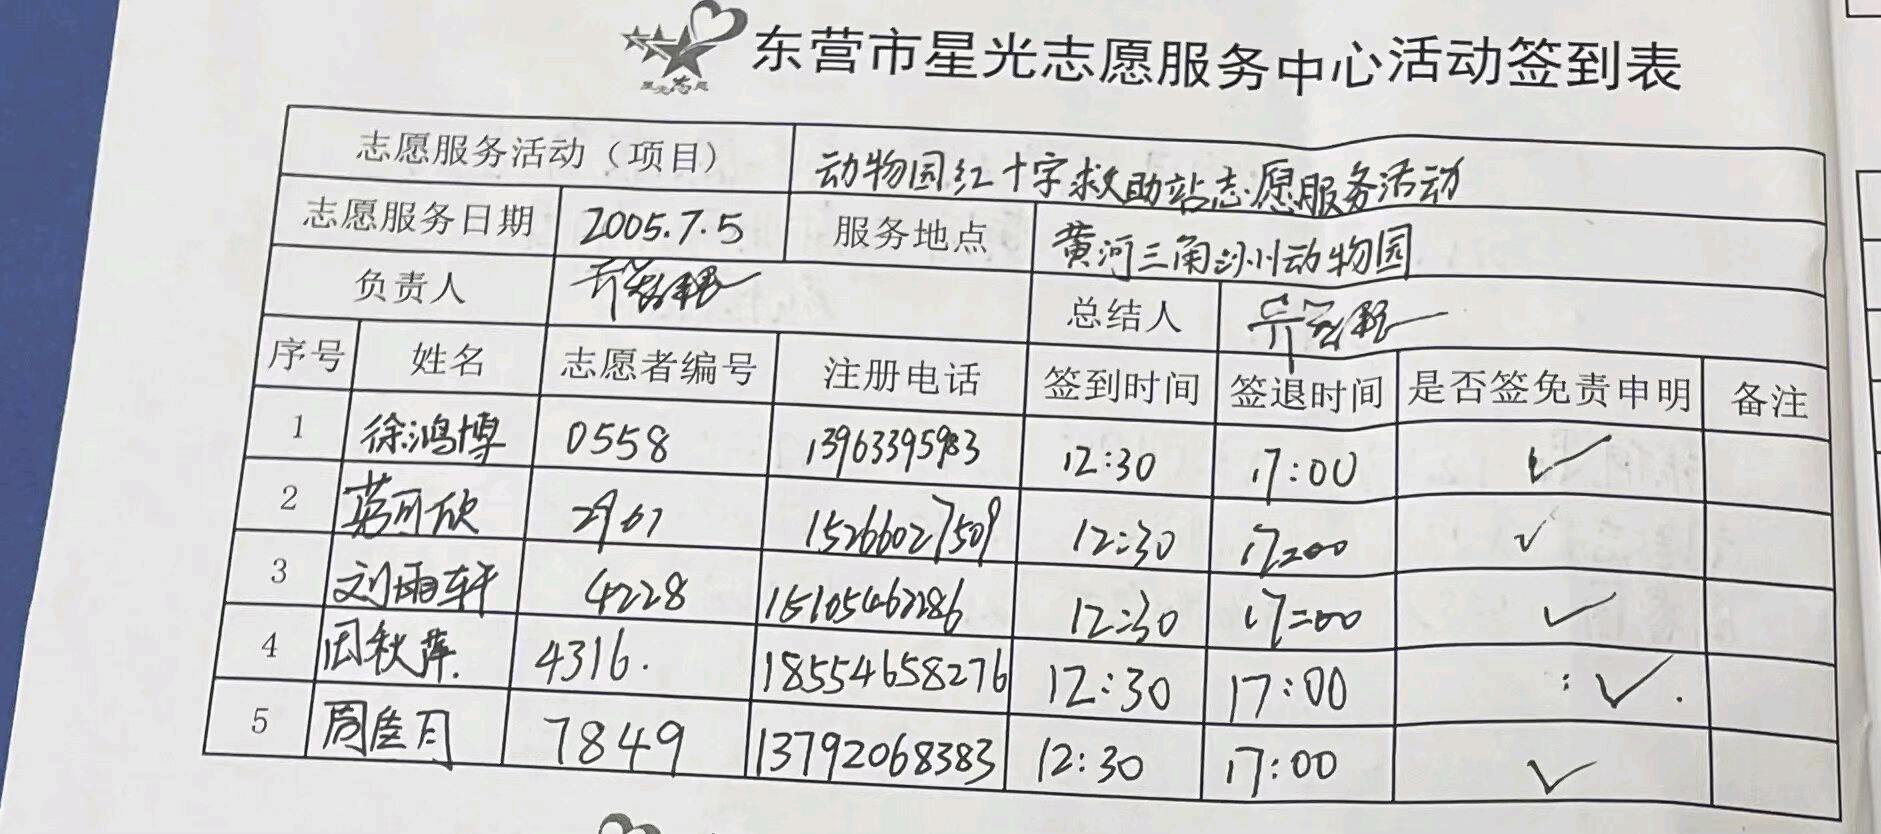 东营市星光志愿服务中心活动签到表
志愿服务活动（项目） 动物园红十字救助站志愿服务活动
志愿服务日期 2005.7.5 服务地点 黄河三角洲动物园
负责人 总结人
序号 姓名 志愿者编号 注册电话 签到时间 签退时间 是否签免责申明 备注
1 徐鸿博 0558 13963395983 12:30 17:00 ✓
2 可欣 2961 15266027509 12:30 17:00 ✓
3 刘雨轩 4228 15105462286 12:30 17:00 ✓
4 周秋萍. 4316. 18554658276 12:30 17:00 ✓
5 周佳月 7849 13792068383 12:30 17:00 ✓